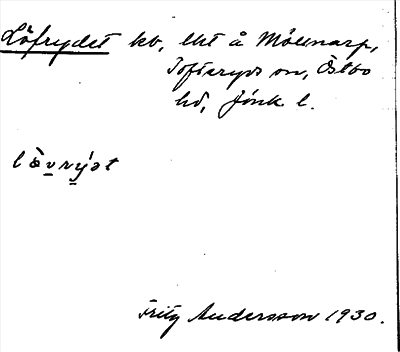 Löfrydet kb, lht å Målenarp,
Tofteryds sn, Östbo
hd, Jönk l.
lǜvrýət
Fritz Andersson 1930.